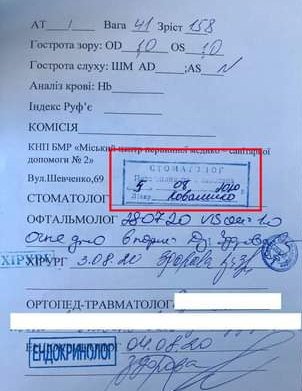 АТ / Вага 41 Зріст 158
Гострота зору: OD 1,0 OS 1,0
Гострота слуху: ШМ AD ;AS N
Аналіз крові: Hb
Індекс Руф'є
КОМІСІЯ
КНП БМР «Міський центр первинної медико – санітарної
допомоги № 2»
СТОМАТОЛОГ
5 08 2020
Вул.Шевченко,69 Лікар
СТОМАТОЛОГ
ОФТАЛЬМОЛОГ 28.07.20 VIS 1.0
Очне дно в нормі Д:
ХІРУРГ ХІРУРГ 3.08.20 Здорова
ОРТОПЕД-ТРАВМАТОЛОГ
ЕНДОКРИНОЛОГ 04.08.20
Здорова